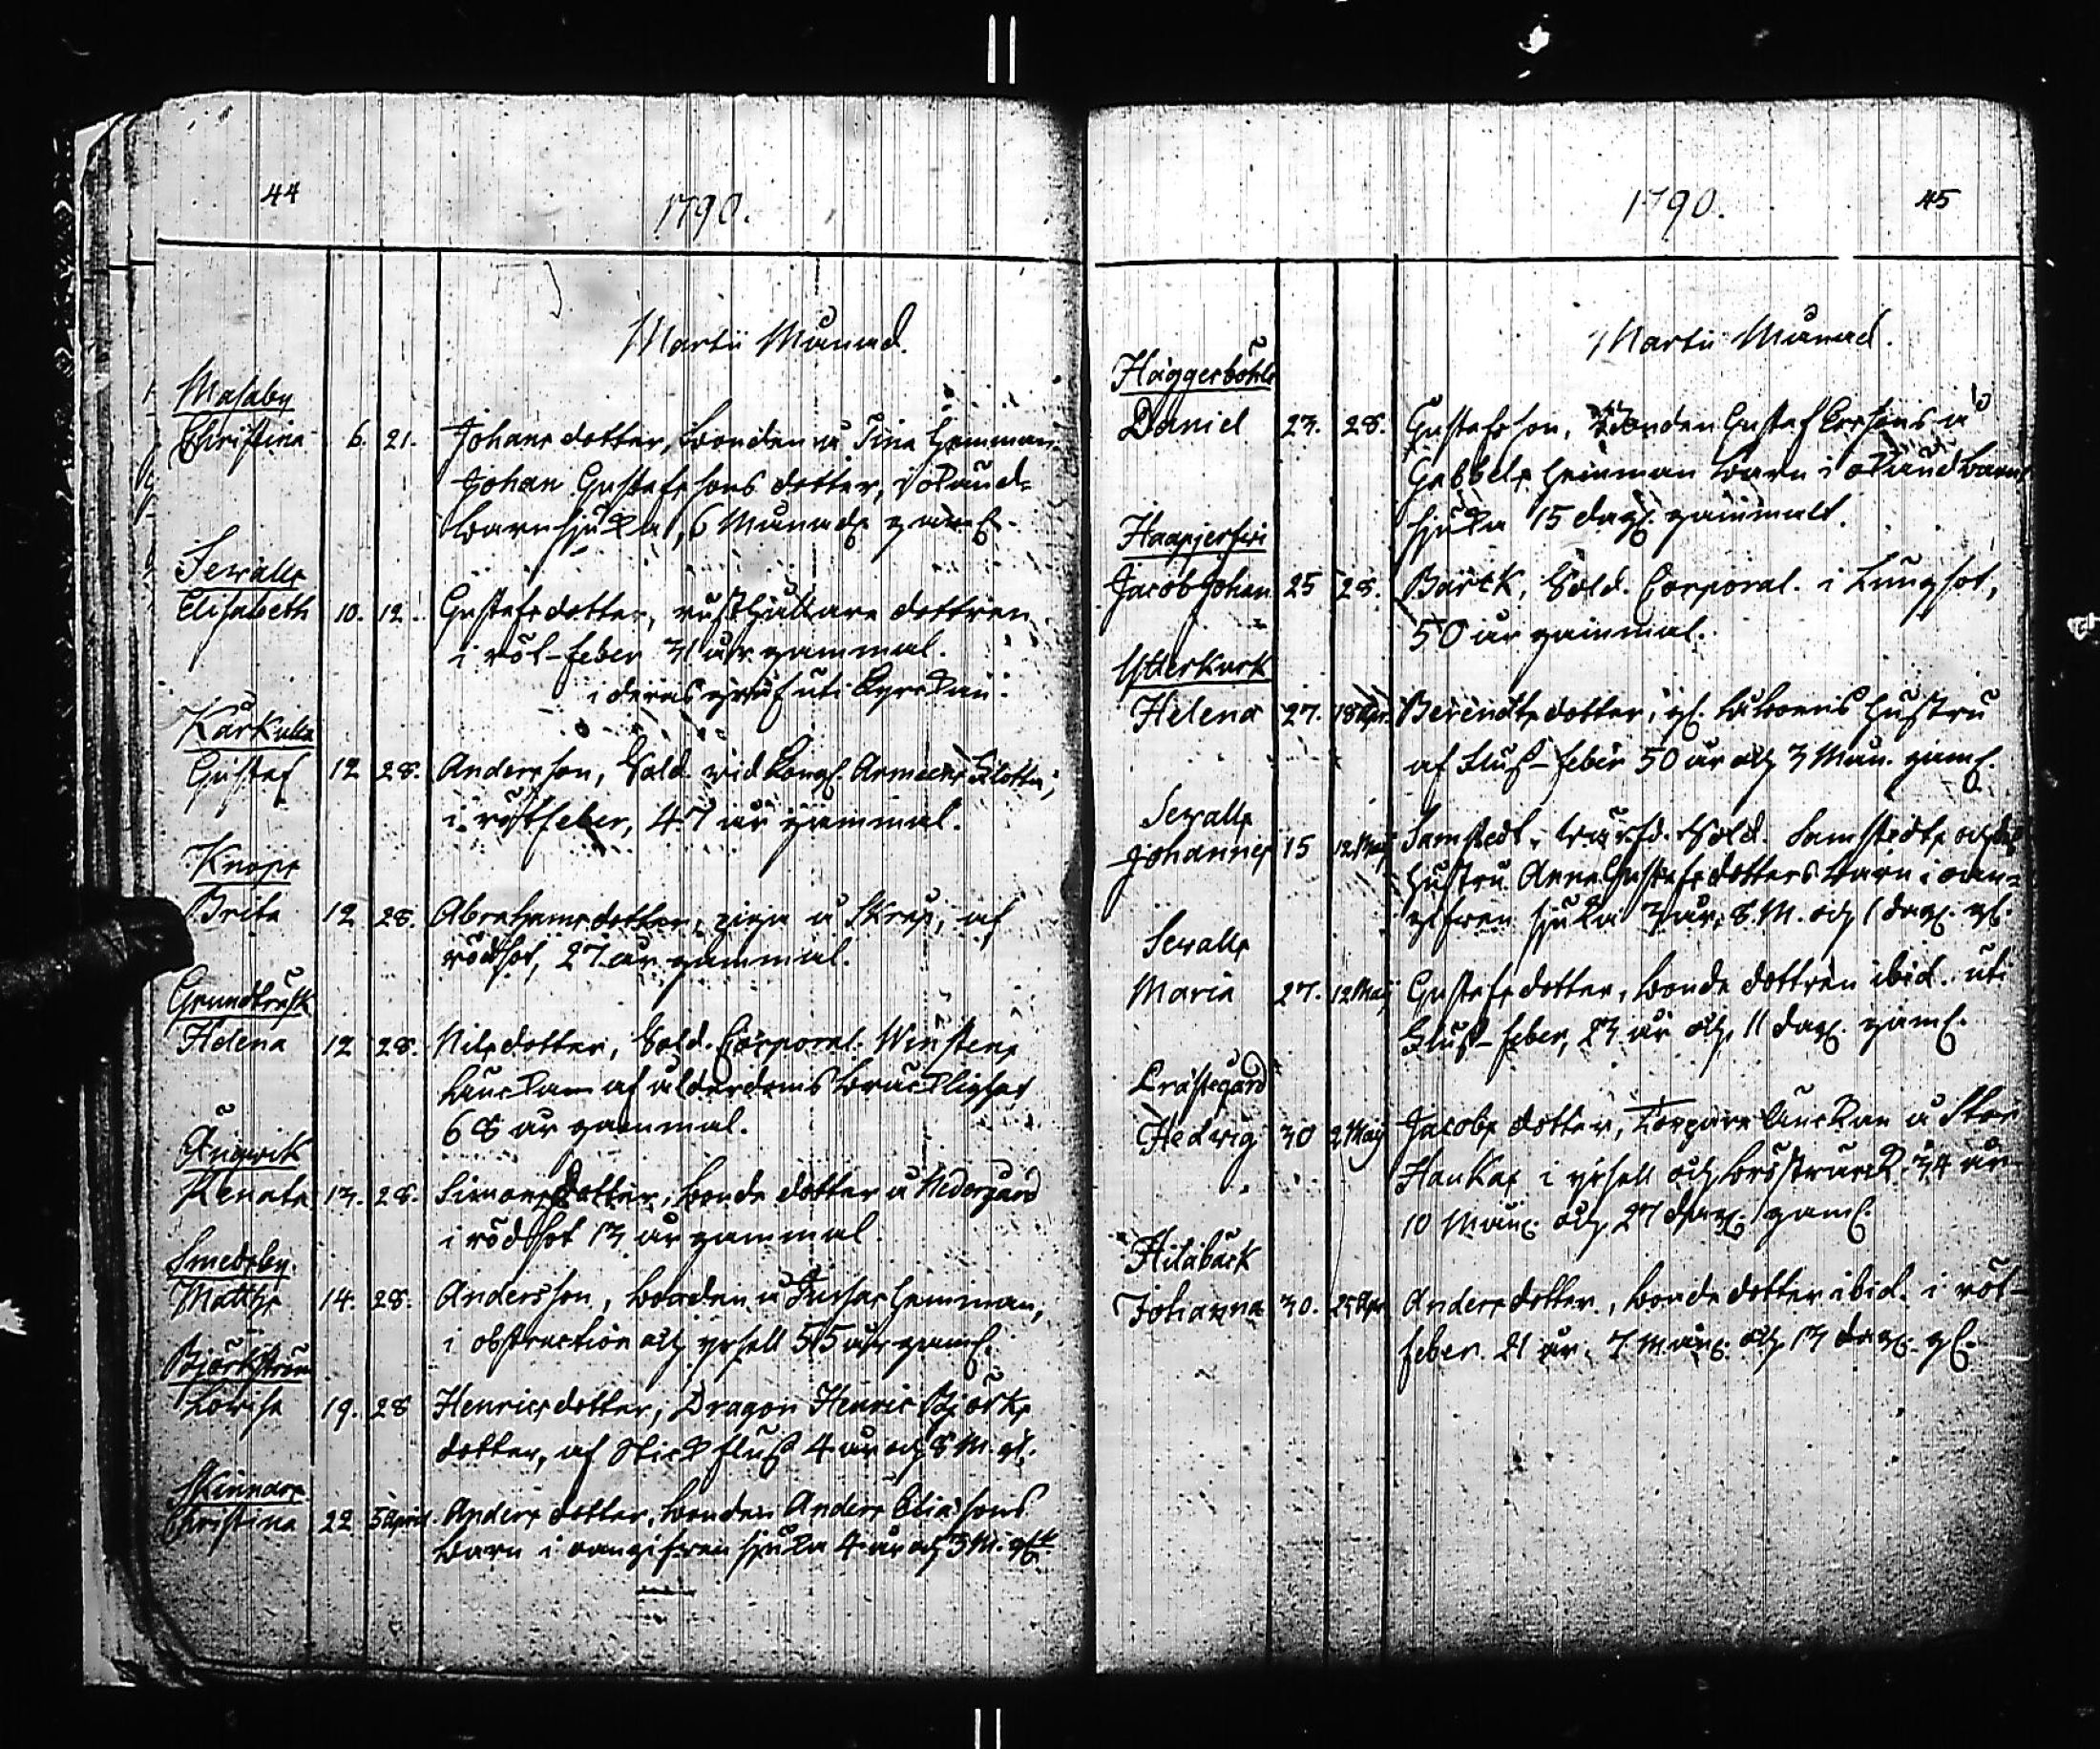 44
1790.
Martii Månad.
Masaby
Christina 6. 21. Johansdotter, bonden å Tina hemman
Johan Gustafssons dotter, i okänd
barnsjuka, 6 Månads gaml.
Sevalls
Elisabeth 10. 12. Gustafsdotter, rusthållare dottren
i röt-feber 31 år gammal.
i deras graf uti Kyrckan.
Kårkulla
Gustaf 12 28. Andersson, Sold. wid Kongl. Armeens Flotta,
i rötfeber, 47 år gammal.
Knops
Brita 12 28. Abrahamsdotter, piga å Skrup, af
rödsot, 27 år gammal.
Grundträsk
Helena 12 28. Nilsdotter, Sold. Corporal Winstens
änckan af ålderdoms bräcklighet
68 år gammal.
Ångwik
Renata 13. 28. Simonsdotter, bonde dotter å Nedergård
i rödsot 13 år gammal.
Smedsby.
Matths 14. 28. Andersson, bonden å hemman,
i obstruction och yrsell 55 år gaml.
Björkström
Lovisa 19. 28 Henricsdotter, Dragon Henric Björks
dotter, af Stickfluss 4 år och 8 M. gl.
Skinnars
Christina 22. 5 April. Andersdotter, bonden Anders Eliæsons
barn i oangifven sjuka 4 år och 3 M. glt
1790. 45
Martii Månad.
Häggerböhle
Daniel 23. 28. Gustafsson, Bonden Gustaf Ersons å
Gabbels hemman barn i okänd barn
sjuka 15 dag. gammalt.
Haapjerfwi
Jacob Johan 25 28. Bärck, Sold. Corporal. i Lungsot,
50 år gammal.
Ytterkurk
Helena 27. 18 Apr. Berendtsdotter, gl. hustru
af Fluss-feber 50 år och 3 Mån. gaml.
Sevalls
Johannes 15 12 Maij Samstedt, wärfd. Sold. Samstedts och dess
hustru Anna Gustafsdotters barn i oan-
gifven sjuka 3 år, 8. M. och 1 dag. gl.
Sevalls
Maria 27. 12 Maij Gustafsdotter, bonde dottren ibid. uti
Fluss-feber, 23 år och 11 dag. gaml.
Prästegård
Hedvig 30 2 Maij Jacobs dotter, Torpare änckan å Stor
Hankas i yrsell och bröstwärck 34 år
10 Mån. och 27 dag. gaml.
Hilabäck
Johanna 30. 25 Apr. Andersdotter, bonde dotter ibid. i röt-
feber. 21 år, 7 Mån. och 13 dag. gl.